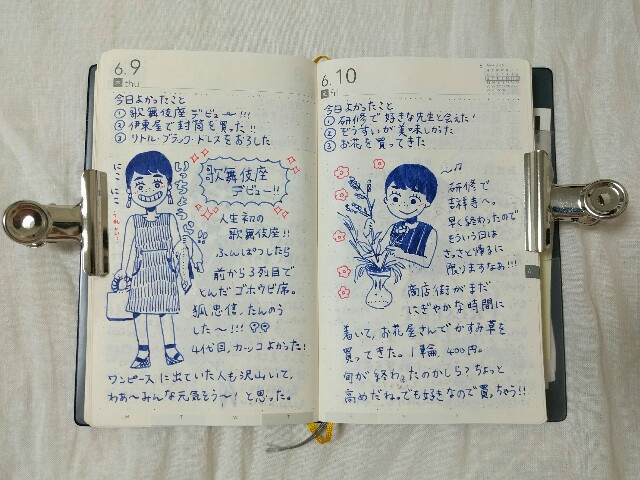 6.9
thu
今日よかったこと
① 歌舞伎座デビュー!!!
② 伊東屋で封筒を買った!!
③ リトル・ブラック・ドレスをおろした
にこにこ
うれしい
いっちょうら
歌舞伎座
デビュー!!
人生初の
歌舞伎座!!
ふんぱつしたら
前から3列目で
とんだゴホウビ席。
狐忠信、たんのう
した〜!!!
4代目、カッコよかった!
ワンピースに出ていた人も沢山いて、
わぁ〜みんな元気そう〜!と思った。
6.10
fri
今日よかったこと
① 研修で好きな先生と会えた!
② ぞうすいが美味しかった
③ お花を買ってきた
研修で
吉祥寺へ。
早く終わったので
もういう日は
さっさと帰るに
限りますなぁ!!!
商店街がまだ
にぎやかな時間に
着いて、お花屋さんでかすみ草を
買ってきた。1輪、400円。
旬が終わったのかしら?ちょっと
高めだね。でも好きなので買っちゃう!!
M T W T